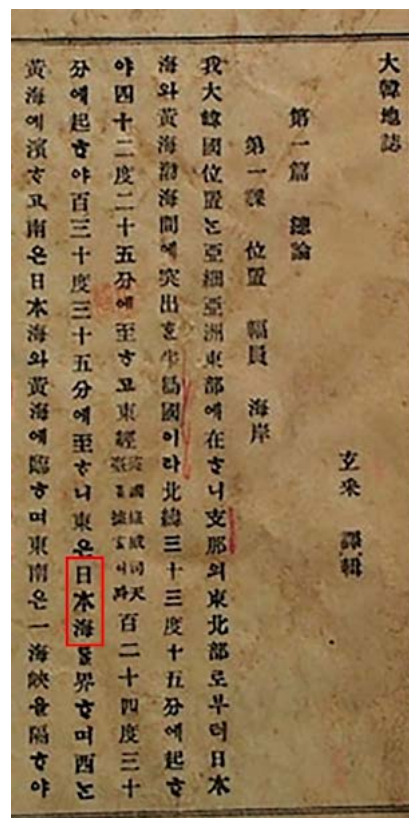 大韓地誌
玄采 譯輯
第一篇 總論
第一課 位置 幅員 海岸
我大韓國位置는亞細亞洲東部에在ᄒᆞ니支那의東北部로부터日本
海와黃海渤海間에突出ᄒᆞᆫ半島國이라北緯三十三度十五分에起ᄒᆞ
야四十二度二十五分에至ᄒᆞ고東經百二十四度三十
分에起ᄒᆞ야百三十度三十五分에至ᄒᆞ니東은日本海를界ᄒᆞ며西는
黃海에濱ᄒᆞ고南은日本海와黃海에臨ᄒᆞ며東南은一海峽을隔ᄒᆞ야